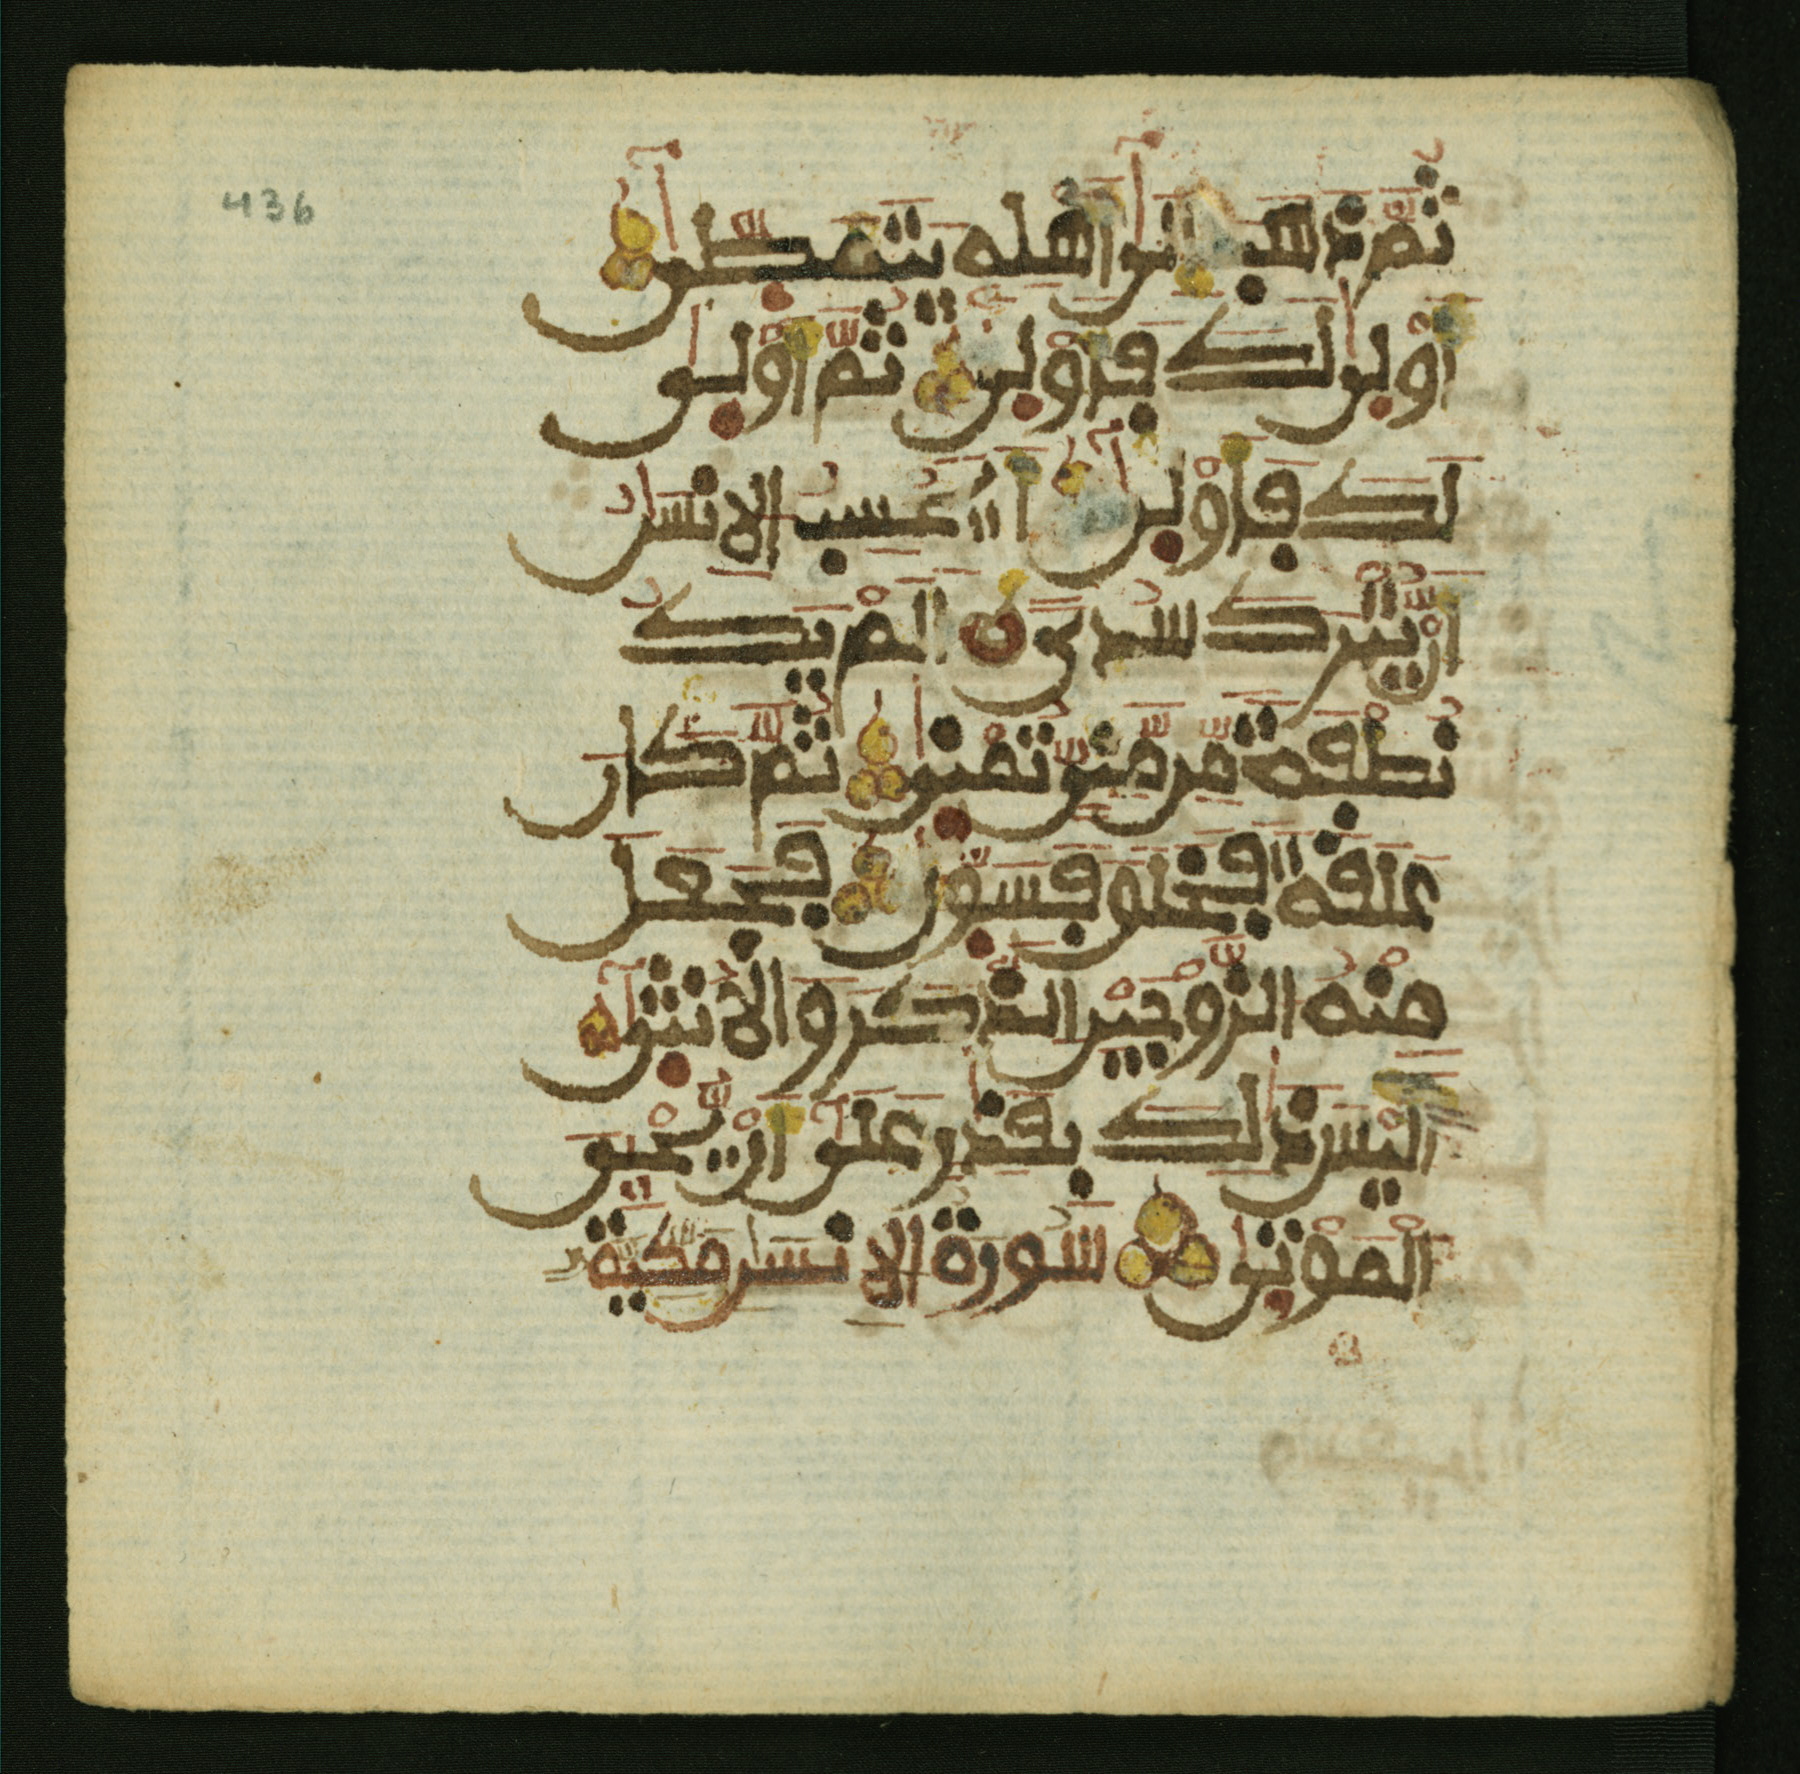 436
ثم ذهب إلى أهله يتمطى
أولى لك فأولى ثم أولى
لك فأولى أيحسب الإنسان
أن يترك سدى ألم يك
نطفة من مني تمنى ثم كان
علقة فخلق فسوى فجعل
منه الزوجين الذكر والأنثى
أليس ذلك بقدر على أن يحيي
الموتى سورة الإنسان مكية